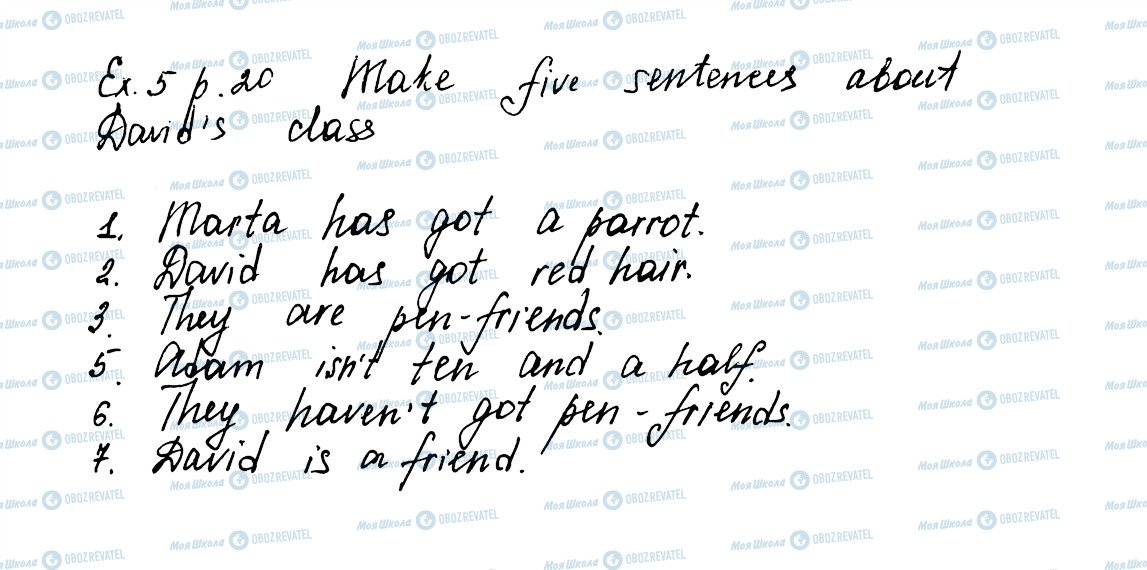 Ex. 5 p. 20 Make five sentences about
David's class
1. Marta has got a parrot.
2. David has got red hair.
3. They are pen-friends.
5. Adam isn't ten and a half.
6. They haven't got pen-friends.
7. David is a friend.
Моя Школа OBOZREVATEL